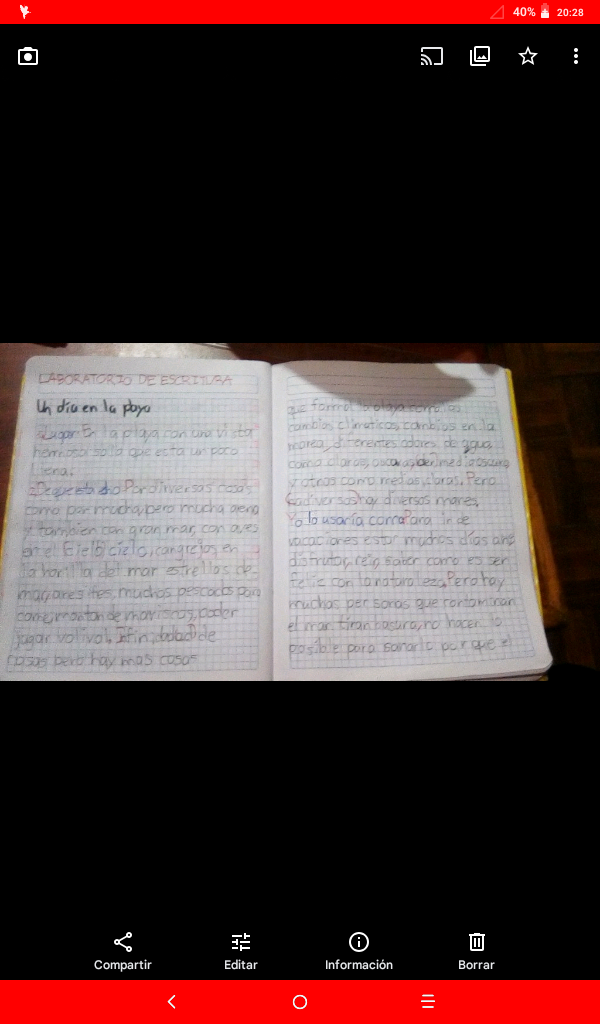 40% 20:28
LABORATORIO DE ESCRITURA
Un día en la playa
Lugar: En la playa con una vista
hermosa solo que esta un poco
Llena.
Por diversas cosas
como por mucha, pero mucha arena
y tambien con gran mar, con aves
en el cielo, cangrejos en
la horilla del mar estrellas de
mar, mucho pescado para
comer, monton de mariscos, poder
jugar volival. Infin de
cosas pero hay mas cosas
que forma la playa como
cambios climaticos, cambios en la
marea, diferentes colores de agua,
como claros, medio oscuro
y otros como medios, claros. Pero
hay diversos mares.
Yo lo usaría como Para ir de
vacaciones estar muchos días
disfrutar, reír, saber como es ser
feliz con la naturaleza, Pero hay
muchas personas que contaminan
el mar, tiran basura, no hacen lo
posible para sanarlo por que el
Compartir
Editar
Información
Borrar